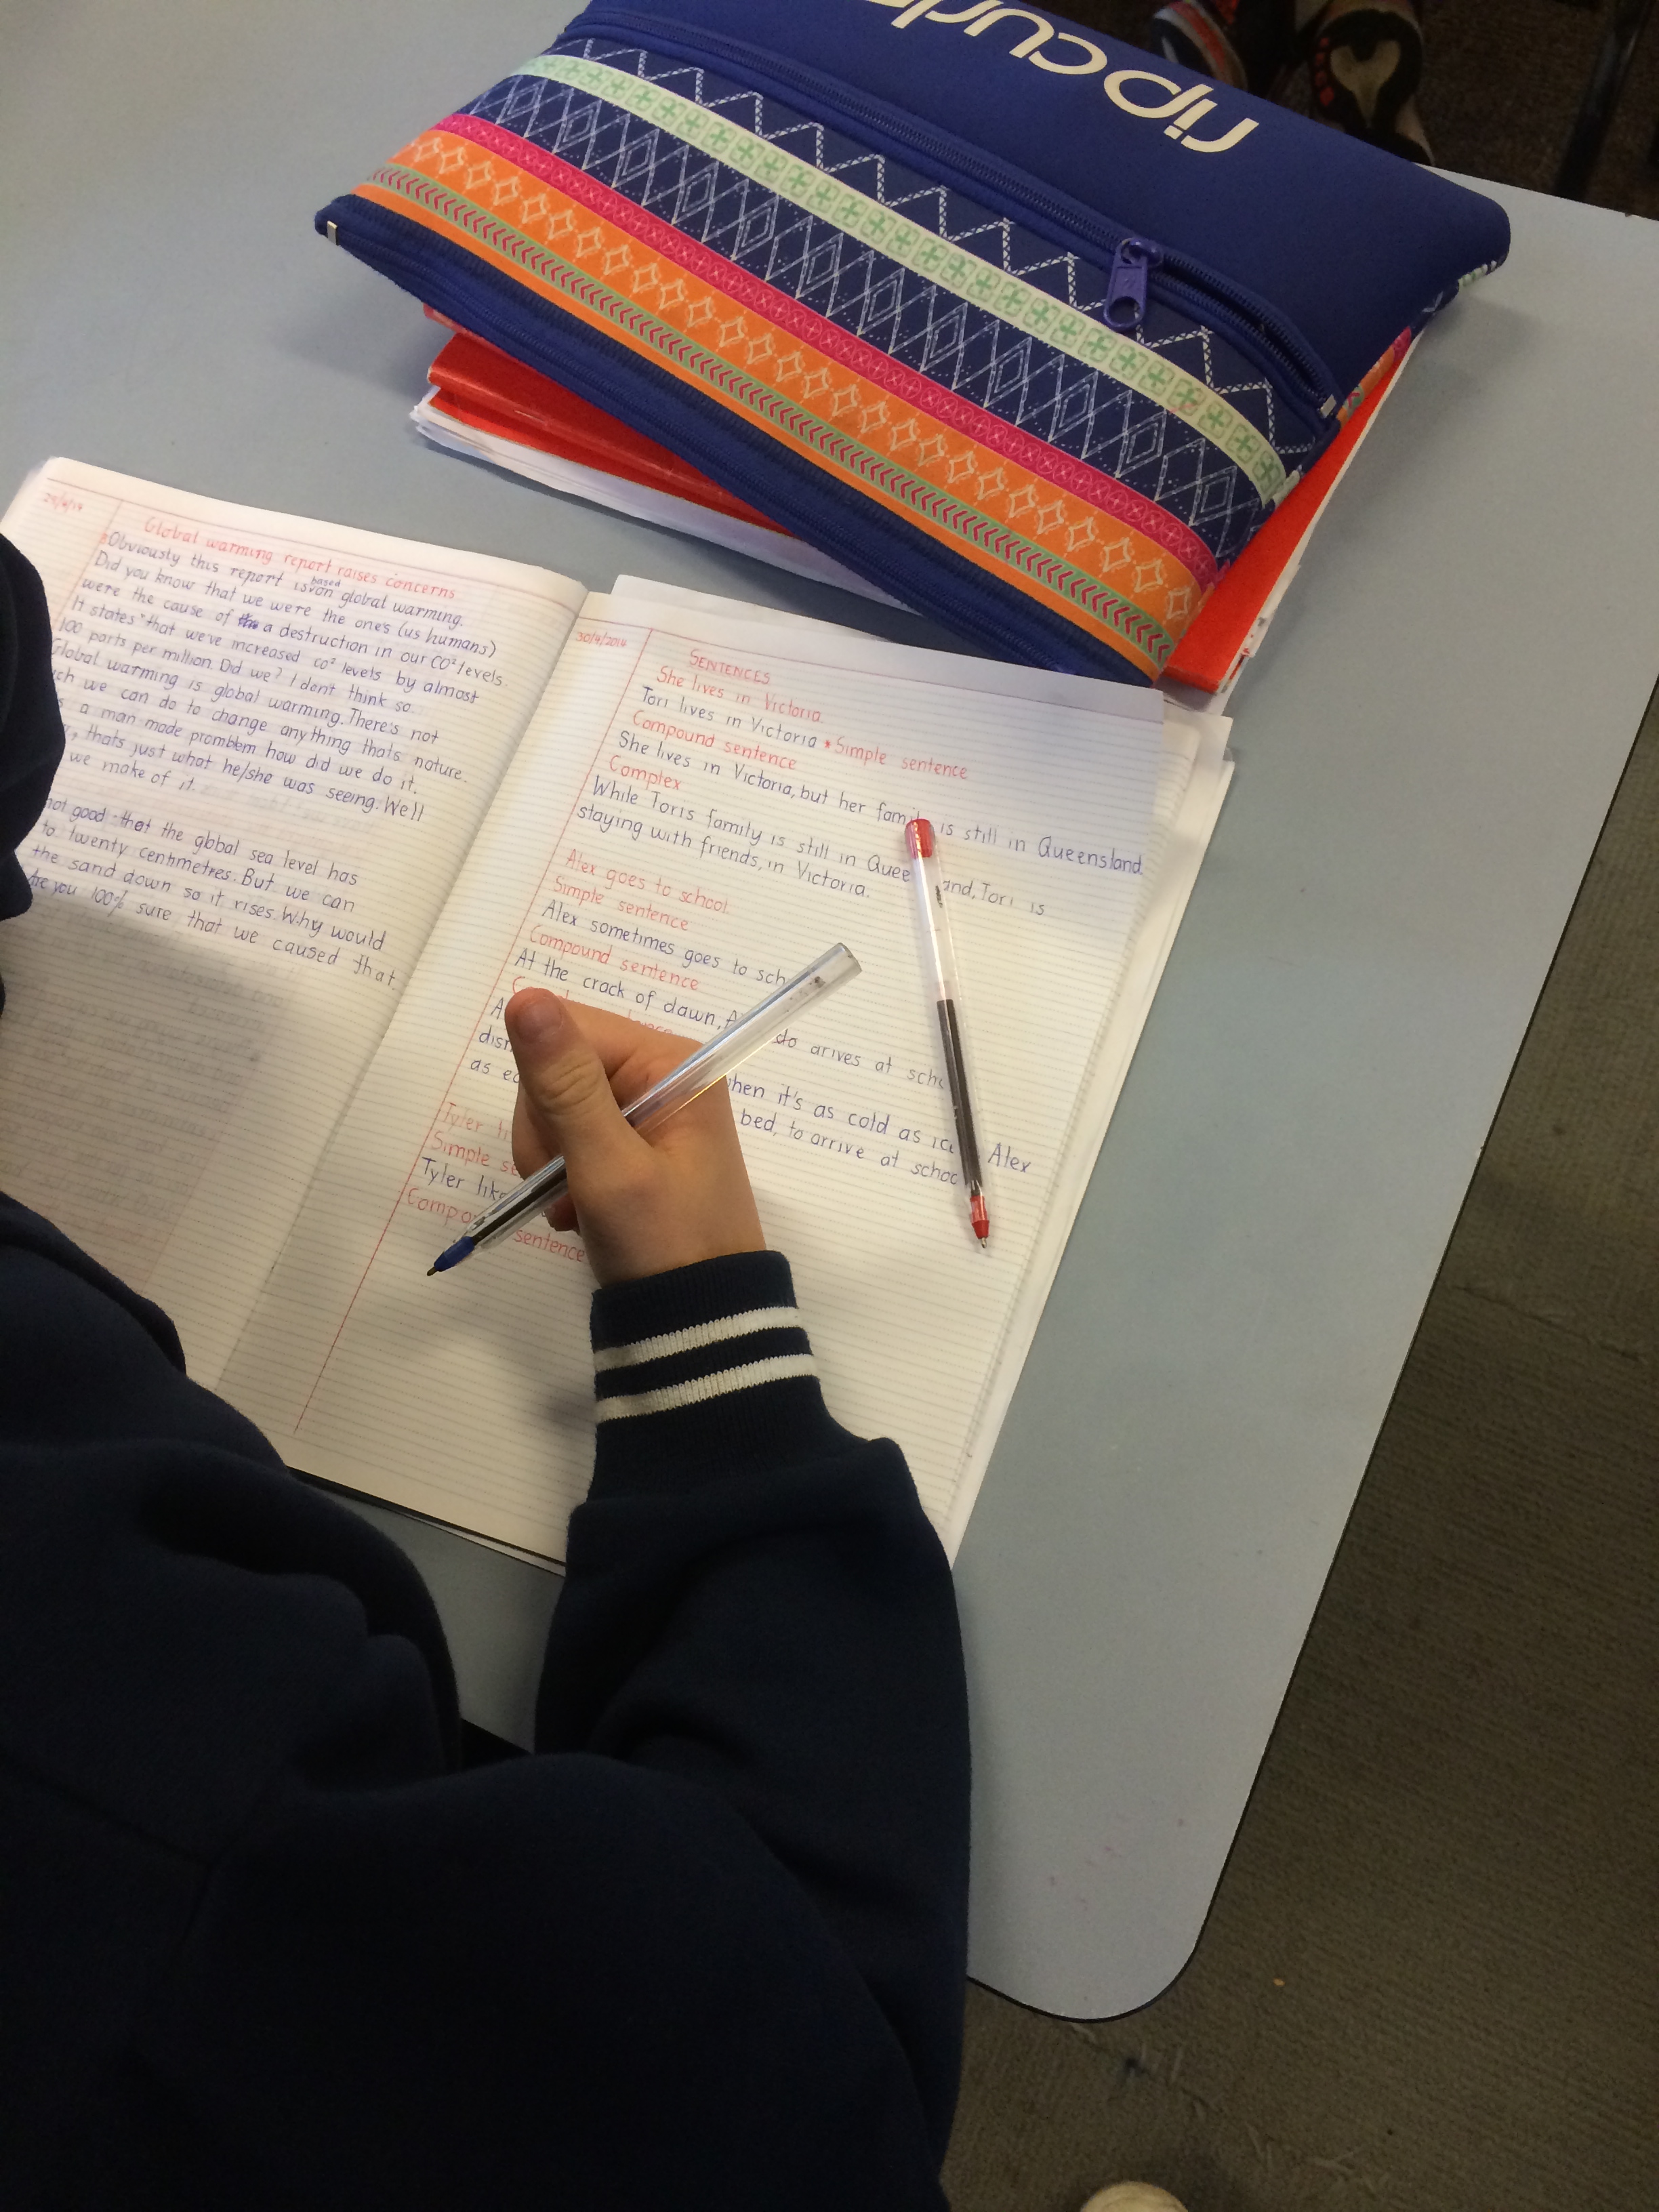 ripcurl
29/4/14
Global warming report raises concerns
Obviously this report is based on global warming.
Did you know that we were the one's (us humans)
were the cause of a destruction in our CO² levels.
It states "that we've increased co² levels by almost
100 parts per million. Did we? I don't think so.
Global warming is global warming. There's not
we can do to change anything thats nature.
a man made promblem how did we do it.
thats just what he/she was seeing. Well
we make of it.
not good that the global sea level has
to twenty centimetres. But we can
the sand down so it rises. Why would
Are you 100% sure that we caused that.
30/4/2014
SENTENCES
She lives in Victoria.
Tori lives in Victoria * Simple sentence
Compound sentence
She lives in Victoria, but her family is still in Queensland.
Complex
While Toris family is still in Queensland, Tori is
staying with friends, in Victoria.
Alex goes to school.
Simple sentence
Alex sometimes goes to sch
Compound sentence
At the crack of dawn, do arives at scho
when it's as cold as ice Alex
as bed, to arrive at school
Tyler
Simple
Tyler like
Compound sentence